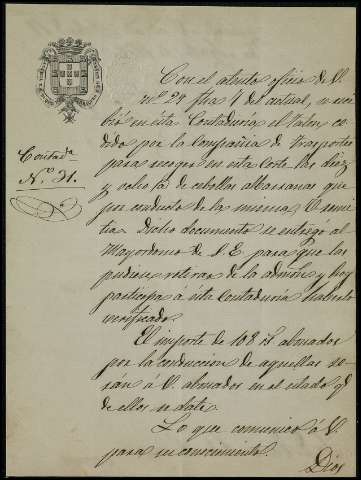 Con el atento oficio de V.
nº 29 fha 7 del actual, se reci
bió en esta Contaduría el talon
dido por la Compañia de Trasportes
Contad.a
Nº 31.
para recoger en esta Corte los diez
y ocho de cebollas albarranas que
por conducto de la misma,
tia. Dicho documento se entregó al
Mayordomo de S. E. para que los
pudiese retirar de la admon y hoy
participa á esta Contaduría haberlo
verificado.
El importe de 108 abonados
por la conduccion de aquellas se
ran á V. abonados en el estado q.
de ellos se date.
Lo que comunico á V.
para su conocimiento.
Dios